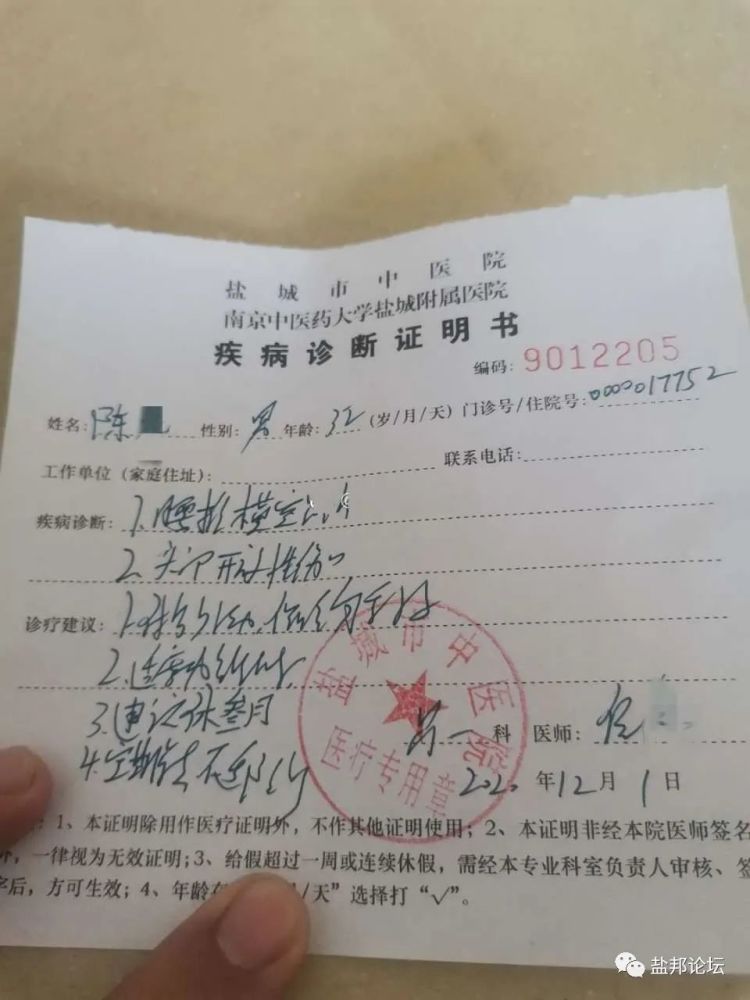 盐城市中医院
南京中医药大学盐城附属医院
疾病诊断证明书
编码: 9012205
姓名: 陈 性别: 男 年龄: 32 (岁/月/天) 门诊号/住院号: 0000017752
工作单位 (家庭住址): 联系电话:
疾病诊断: 1. 腰椎横突
2. 开放性伤口
诊疗建议: 1.
2. 适度功能
3. 建议休叁月
4. 定期 不适
科 医师:
2020 年 12 月 1 日
盐城市中医院
医疗专用章
1、本证明除用作医疗证明外，不作其他证明使用；2、本证明非经本院医师签名
，一律视为无效证明；3、给假超过一周或连续休假，需经本专业科室负责人审核、签
字后，方可生效；4、年龄在 /天”选择打“√”。
盐邦论坛